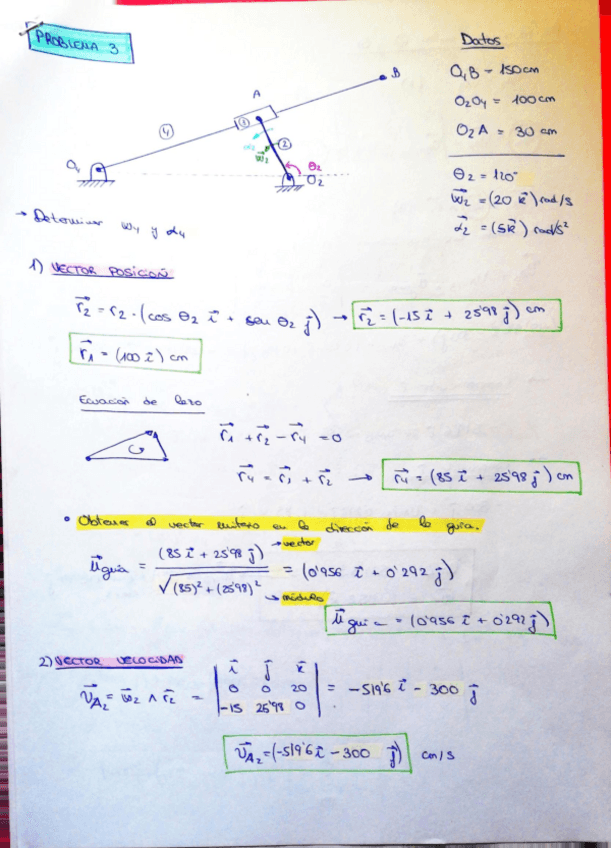 PROBLEMA 3
Datos
O₄B = 150cm
O₂O₄ = 100cm
O₂A = 30 cm
θ₂ = 120°
w₂ = (20 k) rad/s
α₂ = (5k) rad/s²
B
A
③
④
α₂
②
w₂
θ₂
O₄
O₂
→ Determinar w₄ y α₄
1) VECTOR POSICION
r₂ = r₂ · (cos θ₂ i + sen θ₂ j) → r₂ = (-15 i + 25'98 j) cm
r₁ = (100 i) cm
Ecuación de lazo
r₁ + r₂ - r₄ = 0
r₄ = r₁ + r₂ → r₄ = (85 i + 25'98 j) cm
• Obtener el vector unitario en la dirección de la guía.
u guía = (85 i + 25'98 j) / √(85)² + (25'98)² = (0'956 i + 0'292 j)
→ vector
→ módulo
u guía = (0'956 i + 0'292 j)
2) VECTOR VELOCIDAD
v A₂ = w₂ ∧ r₂ = | i j k | = -519'6 i - 300 j
0 0 20
-15 25'98 0
v A₂ = (-519'6 i - 300 j) cm/s